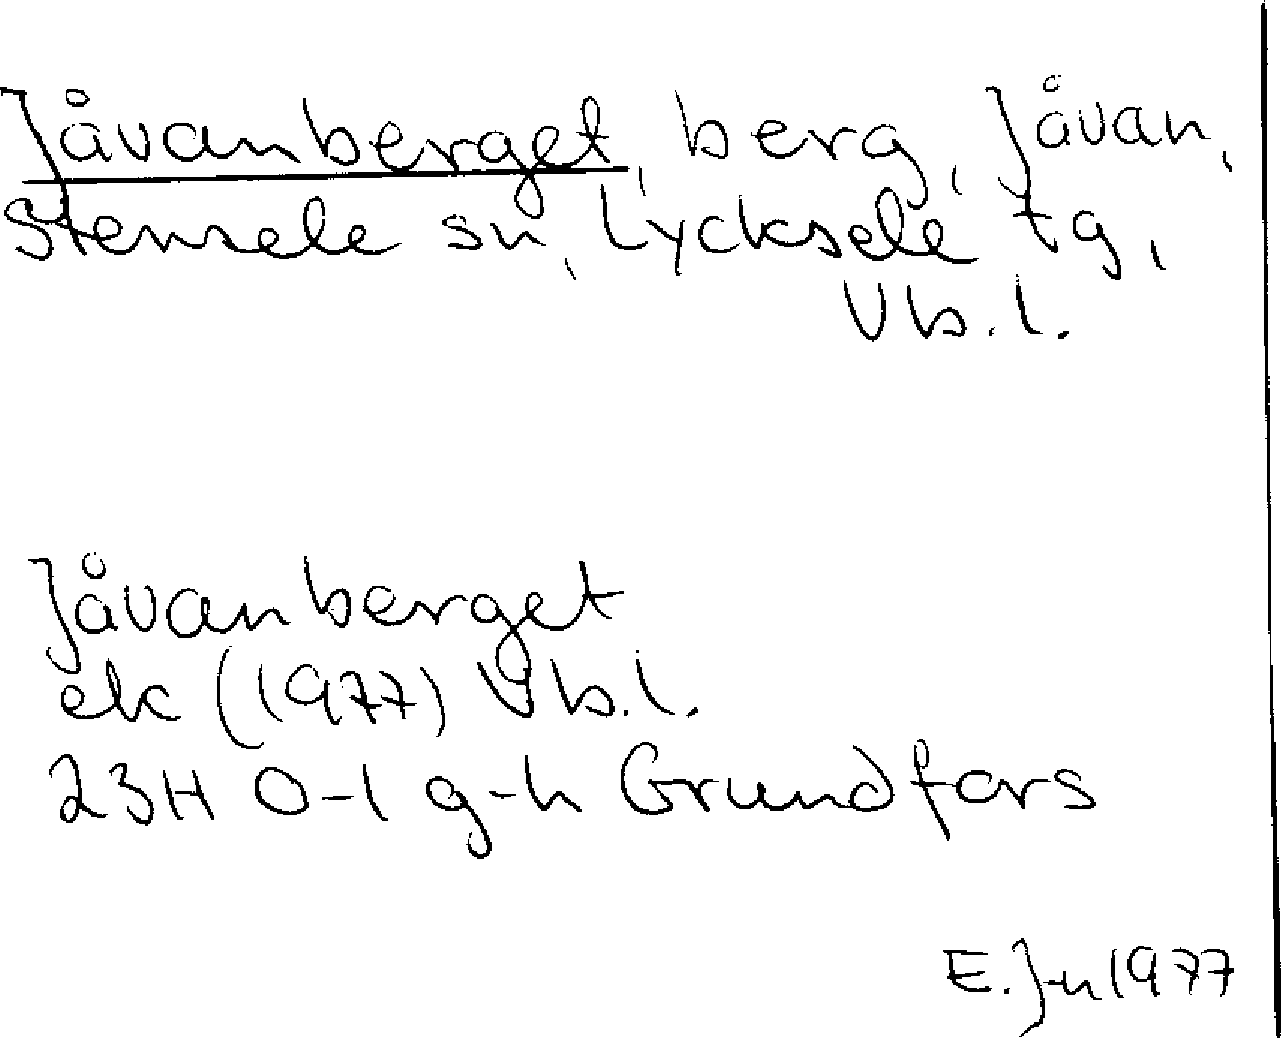 Jåvanberget, berg, Jåvan,
Stensele sn, Lycksele tg,
Vb.l.
Jåvanberget
ek (1977) Vb.l.
23H 0-1 g-h Grundfors
E. J-n 1977